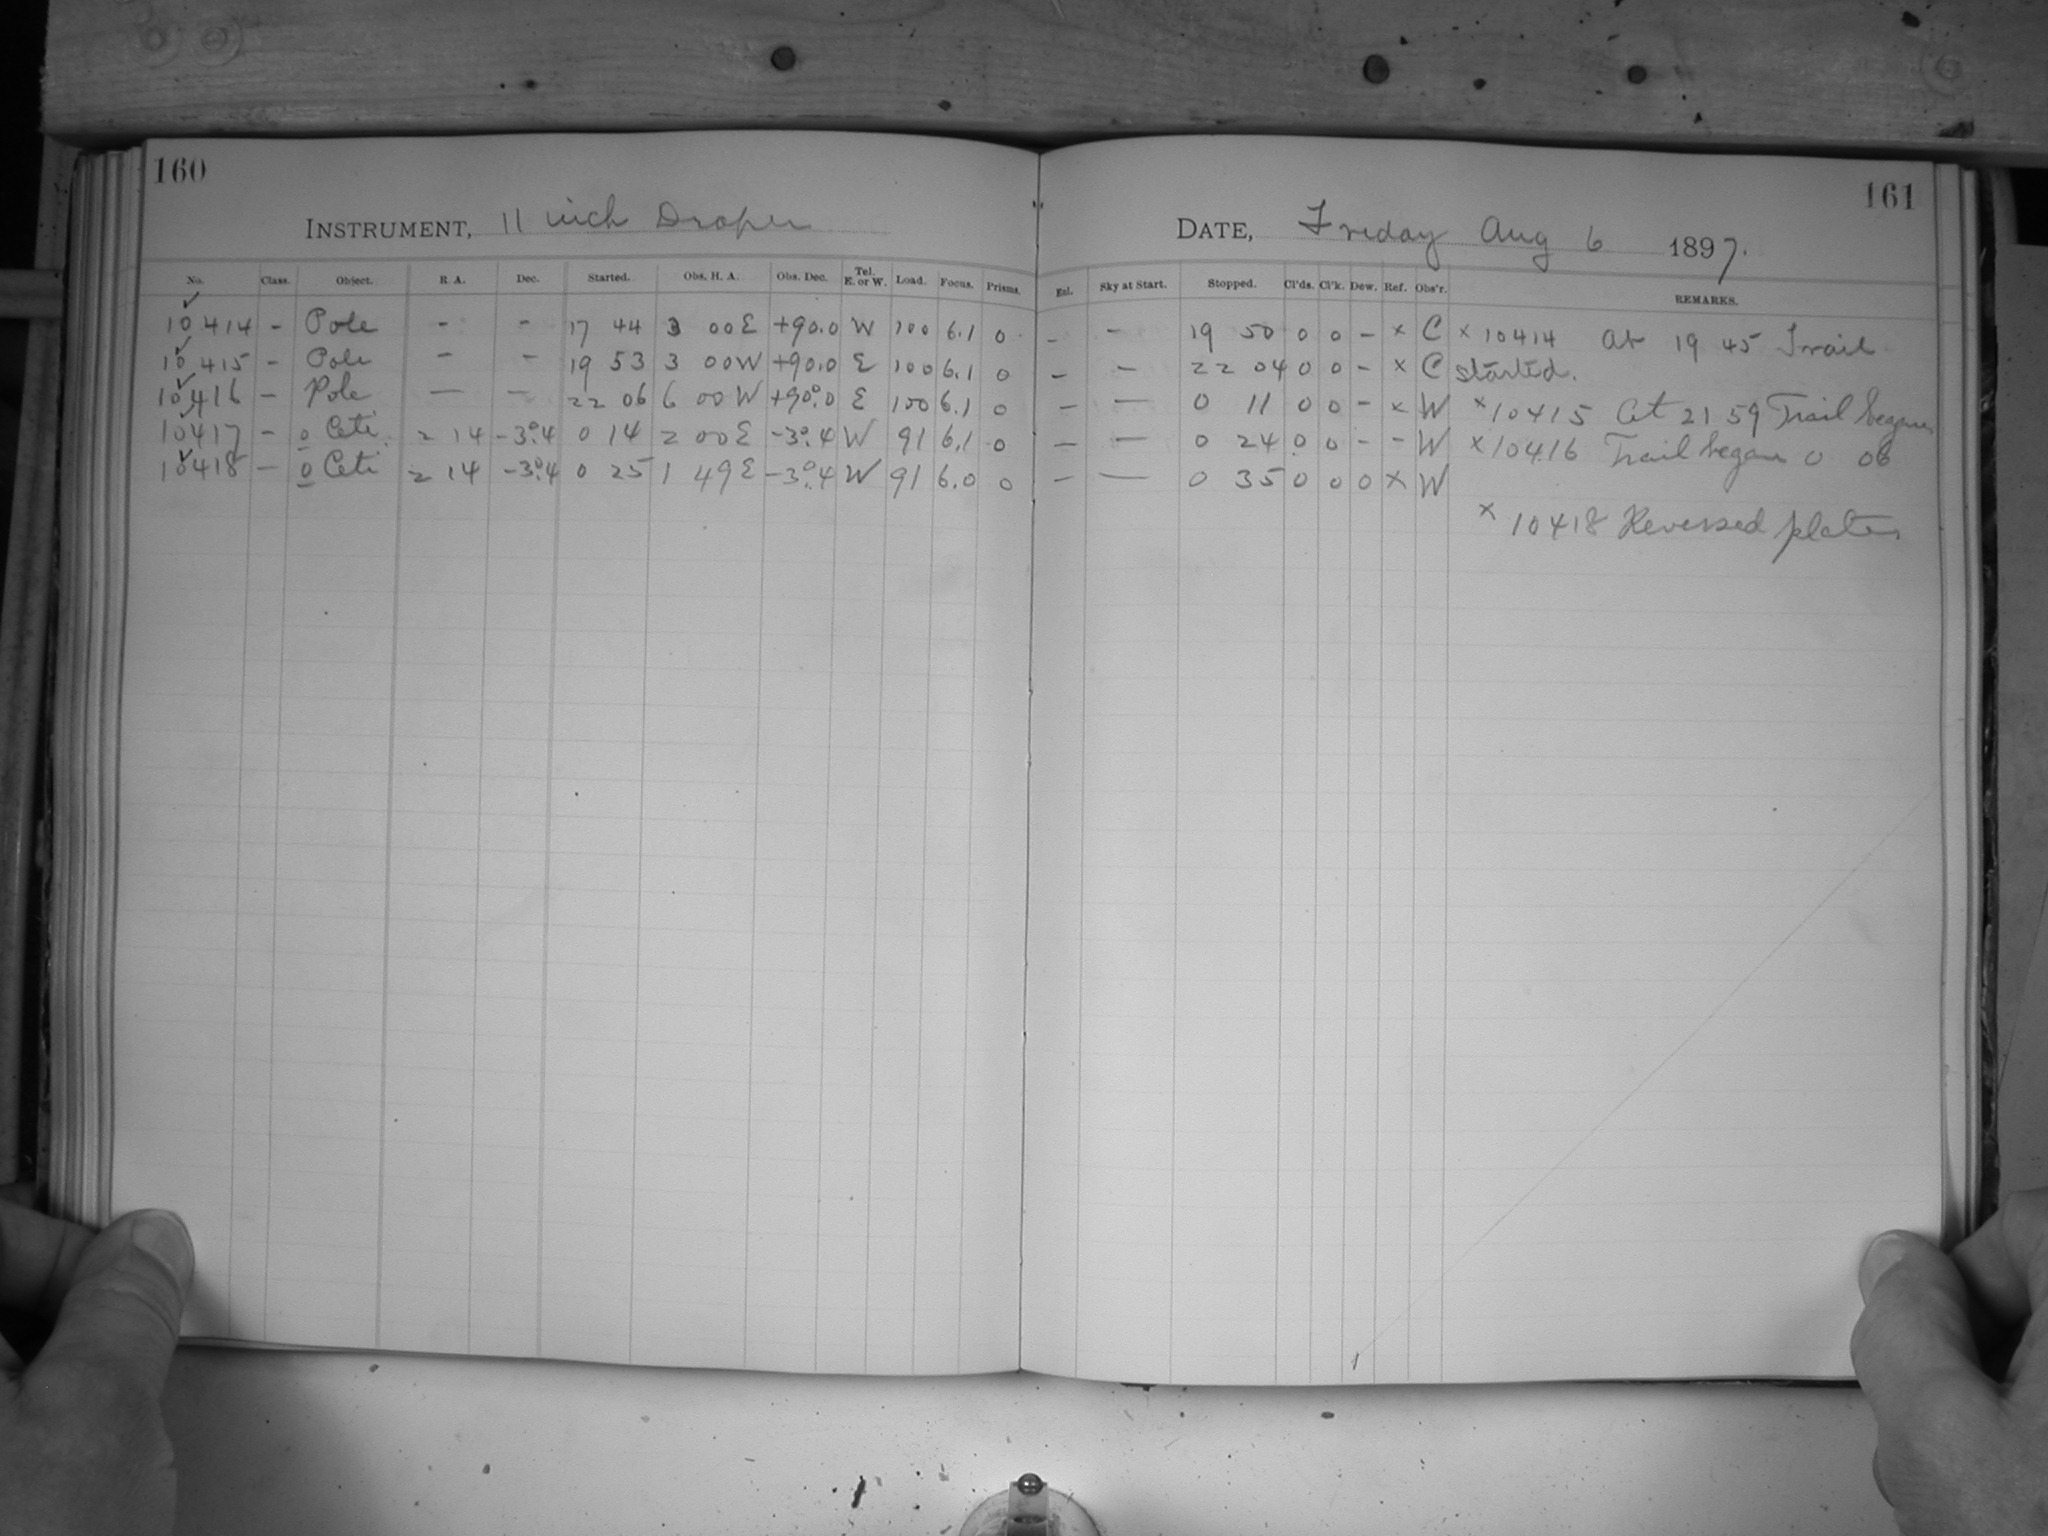 160
161
INSTRUMENT, 11 inch Draper
DATE, Friday Aug 6 1897.
No. Class. Object. R. A. Dec. Started. Obs. H. A. Obs. Dec. Tel. E. or W. Load. Focus. Prisms. Exl. Sky at Start. Stopped. Cl'ds. Cl'k. Dew. Ref. Obs'r. REMARKS.
10414 - Pole - - 17 44 3 00 E +90.0 W 100 6.1 0 - - 19 50 0 0 - x C x 10414 At 19 45 Trail
10415 - Pole - - 19 53 3 00 W +90.0 E 100 6.1 0 - - 22 04 0 0 - x C started.
10416 - Pole - - 22 06 6 00 W +90°.0 E 100 6.1 0 - - 0 11 0 0 - x W x 10415 At 21 59 Trail began
10417 - o Ceti. 2 14 -3°.4 0 14 2 00 E -3°.4 W 91 6.1 0 - - 0 24 0 0 - - W x 10416 Trail began 0 06
10418 - o Ceti 2 14 -3°.4 0 25 1 49 E -3°.4 W 91 6.0 0 - - 0 35 0 0 0 x W
x 10418 Reversed plates